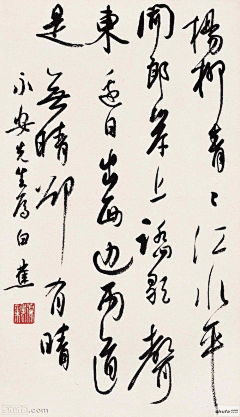 楊柳青〻江水平
聞郎岸上踏歌聲
東边日出西边雨道
是無晴卻有晴
永安先生 白蕉